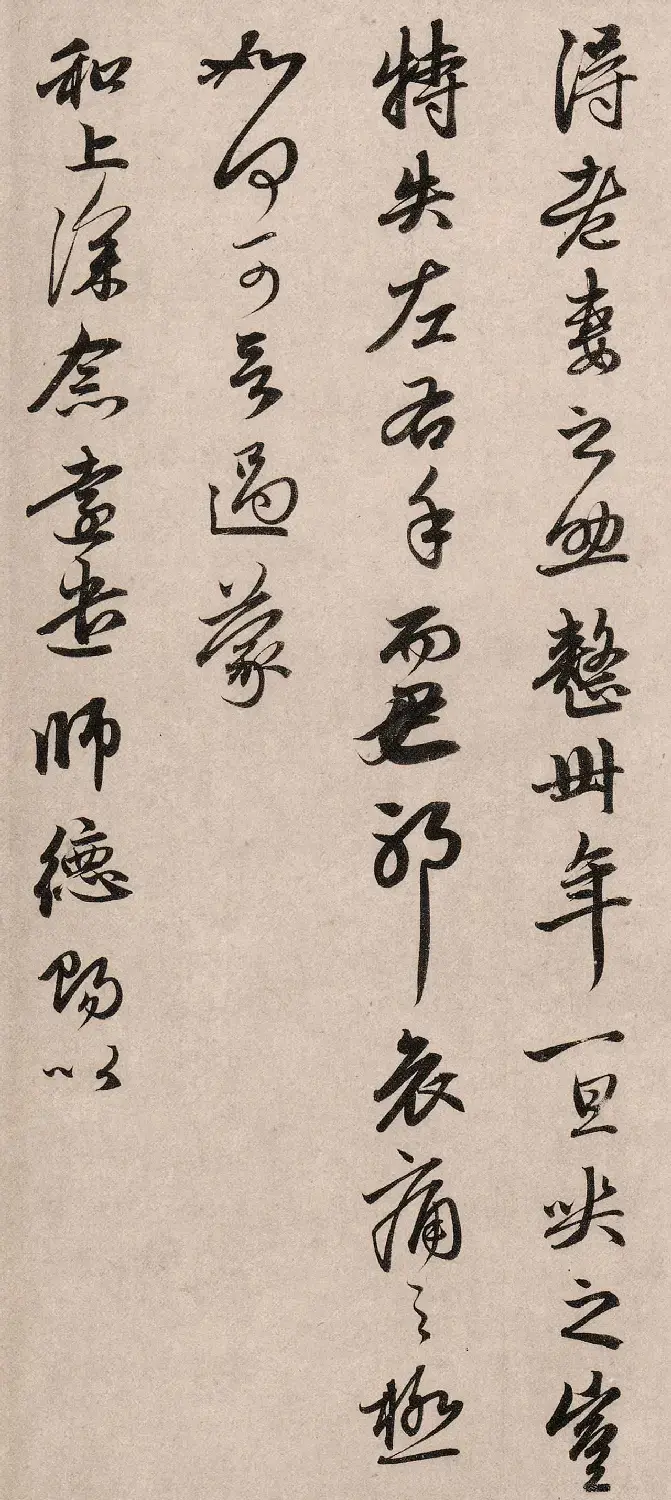 得老妻之助整卅年一旦哭之豈
特失左右手而已耶哀痛之極
如何可言過蒙
和上深念遠遣師德賜以